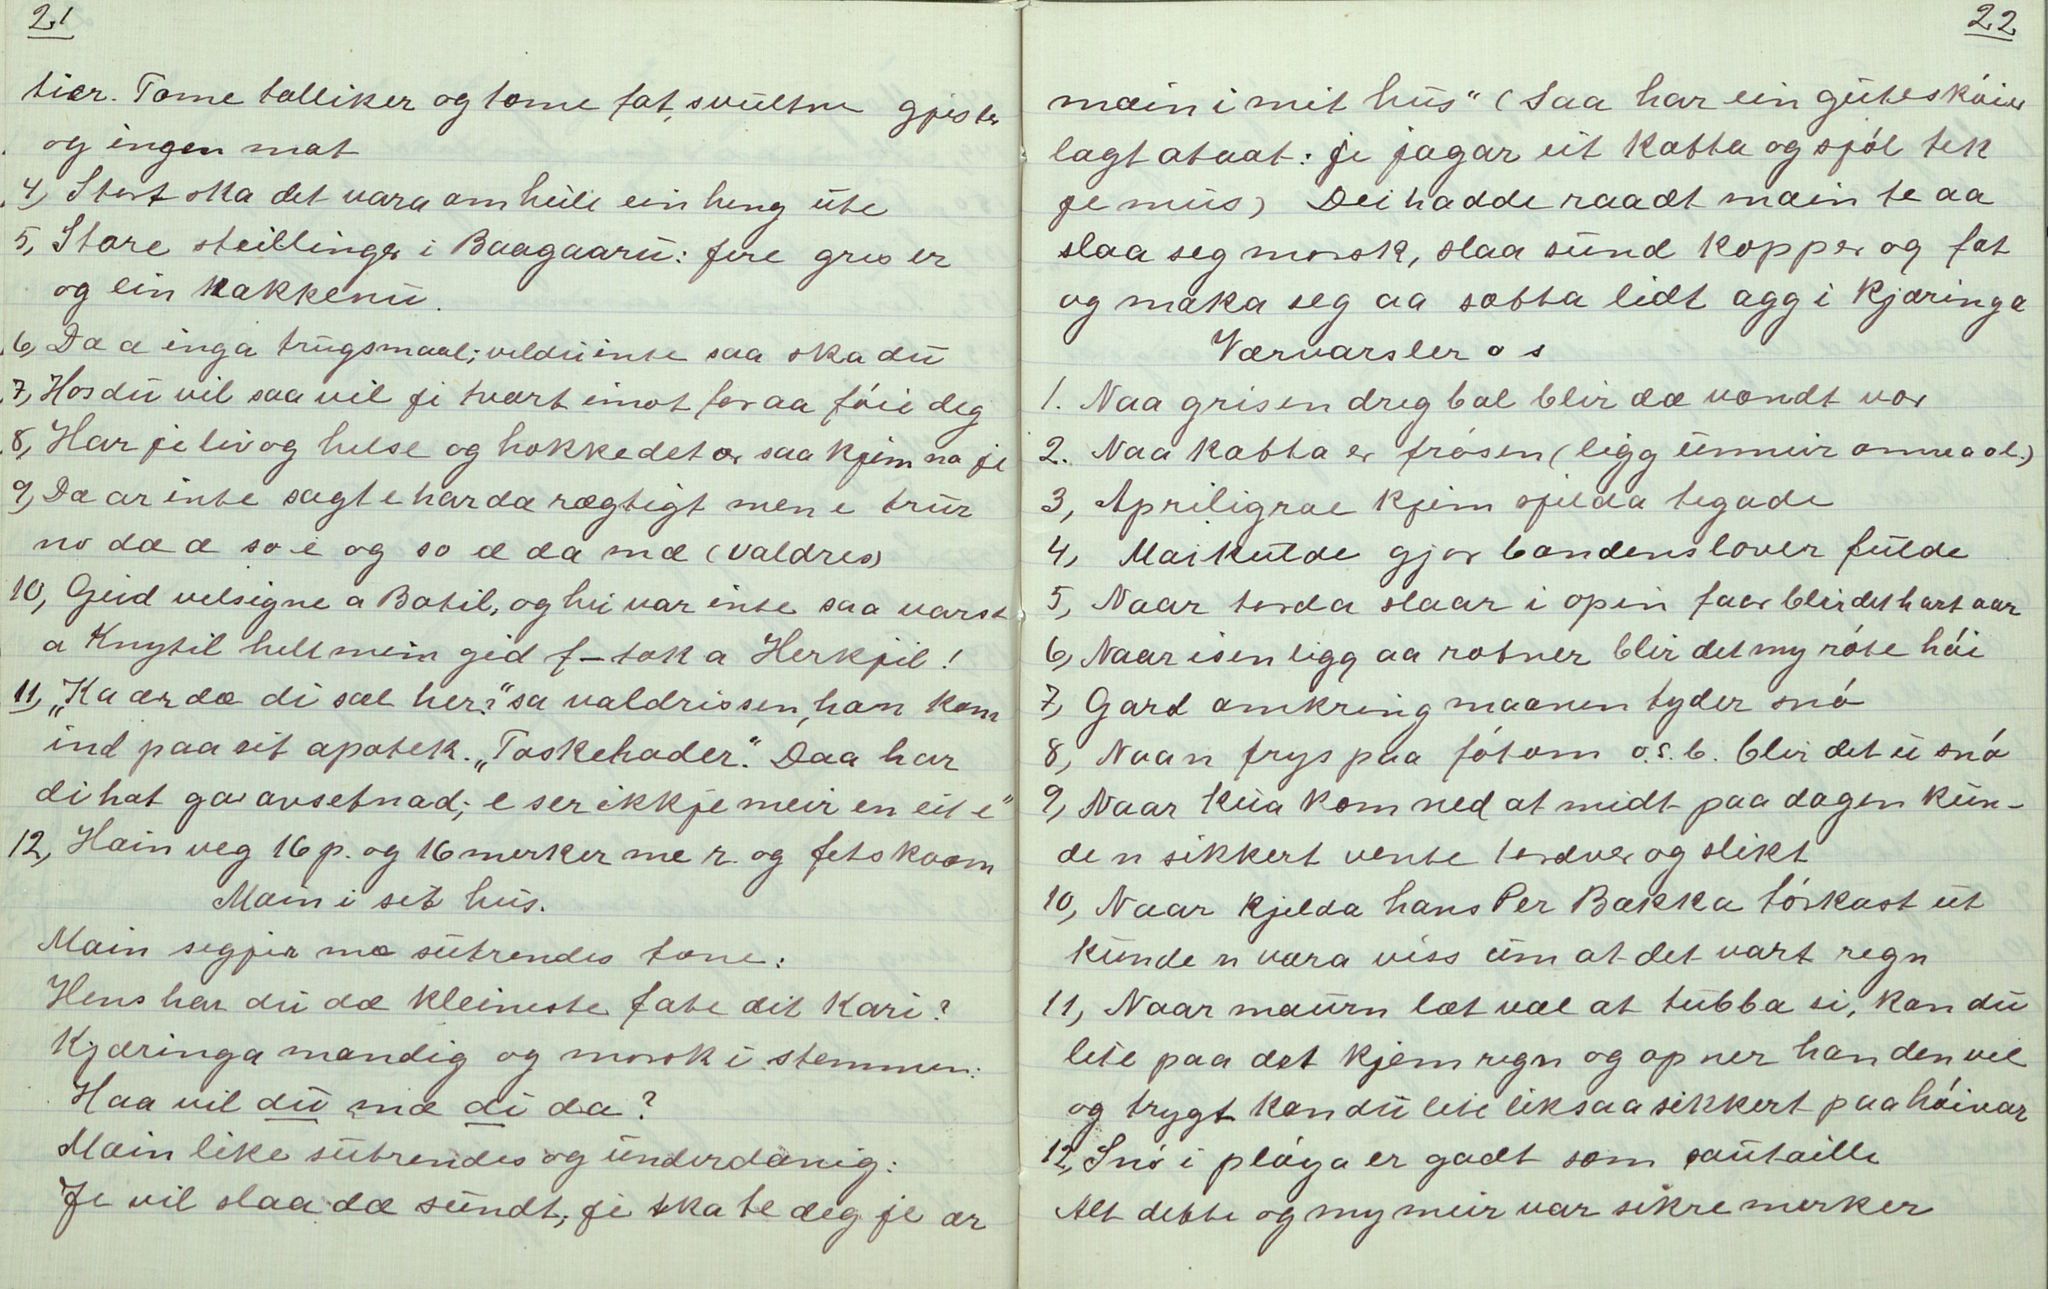 21
tier. Tome talliker og tome fat, svultne gjester
og ingen mat
4, Stort ska det vara om heile ein heng ute
5, Store steillinger i Baagaarn: fire griser
og ein kakkenu.
6, Dæ æ inga trugsmaal; vildu inte saa ska du
7, Hos du vil saa vil je tvært imot for aa föie deg
8, Har je liv og helse og hokke det ær saa kjem no je
9, Dæ ar inte sagt e har da rægtigt men e trur
no dæ æ so e og so æ da mæ (Valdres)
10, Geid velsigne a Botil, og hu var inte saa varst
a Knytil helt mein gid f–tok a Herkjil!
11, „Ka ær dæ di sæl her?" sa valdrissen, han kom
ind paa eit apotek. „Toskehoder". Daa har
di hat gar avsetnad; e ser ikkje meir en eit e"
12, Hain veg 16 p. og 16 merker me r. og fetskoom
Main i sit hus.
Main segjer mæ sutrendes tone:
Hens har du dæ kleineste fate dit Kari?
Kjæringa mandig og morsk i stemmen:
Haa vil du mæ di da?
Main like sutrendes og underdanig:
Je vil slaa dæ sundt, je ska te deg je ær
22
main i mit hus" (Saa har ein gutesköier
lagt ataat: je jagar ut katta og sjöl tek
je mus) Dei hadde raadt main te aa
slaa seg morsk, slaa sund kopper og fat
og maka seg aa sætta lidt agg i Kjæringa
Værvarsler o s
1. Naa grisen dreg bal blir dæ vondt vær
2. Naa katta er frösen (ligg unneir omnea ol.)
3, Apriligrae kjem sjelda tegade
4, Maikulde gjör bondens lover fulde
5, Naar torda slaar i open faar blir det hart aar
6, Naar isen ligg aa rotner blir det my röte höi
7, Gard omkring maanen tyder snö
8, Naa n frys paa fötom o.s.b. blir det u snö
9, Naar kua kom ned at midt paa dagen kun-
de n sikkert vente tordver og slikt
10, Naar kjelda hans Per Bakka törkast ut
kunde n vara viss um at det vart regn
11, Naar maurn læt væl at tubba si, kan du
lete paa det kjem regn og opner han den vel
og trygt kan du lete liksaa sikkert paa höivær
12, Snö i plöya er godt som sautaille
Alt dette og my meir var sikre merker